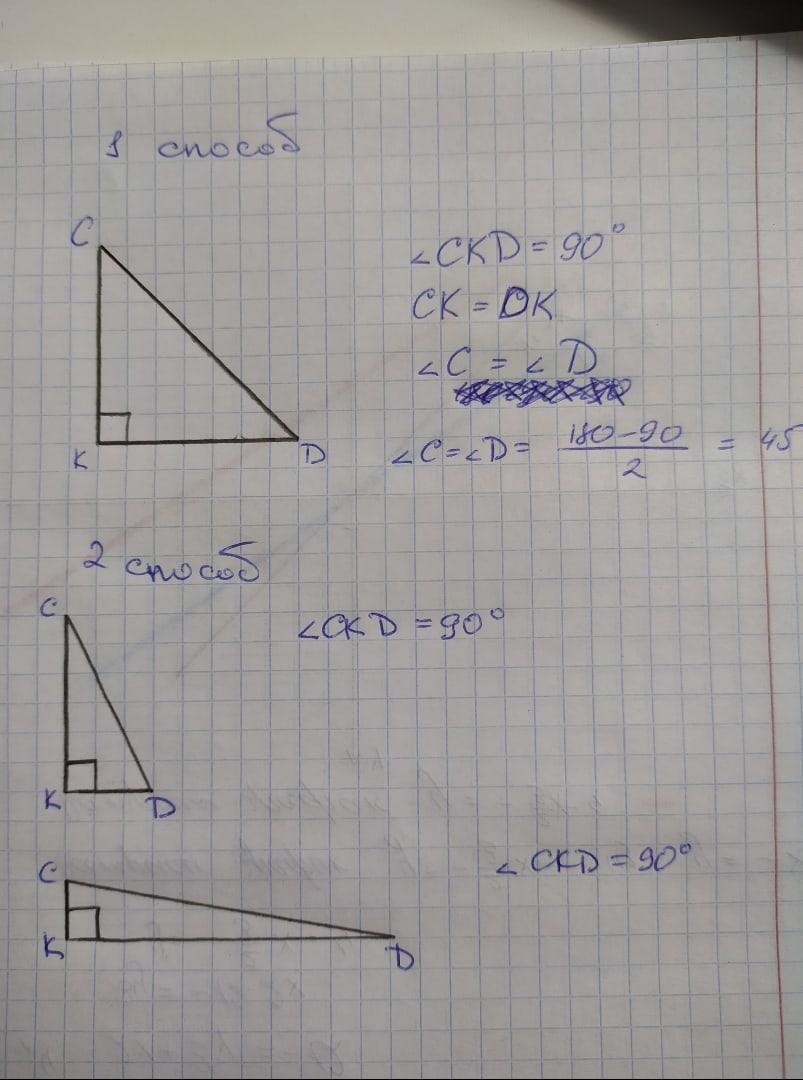 1 способ
C
K
D
∠CKD = 90°
CK = DK
∠C = ∠D
∠C = ∠D = (180 - 90) / 2 = 45
2 способ
C
K
D
∠CKD = 90°
C
K
D
∠CKD = 90°